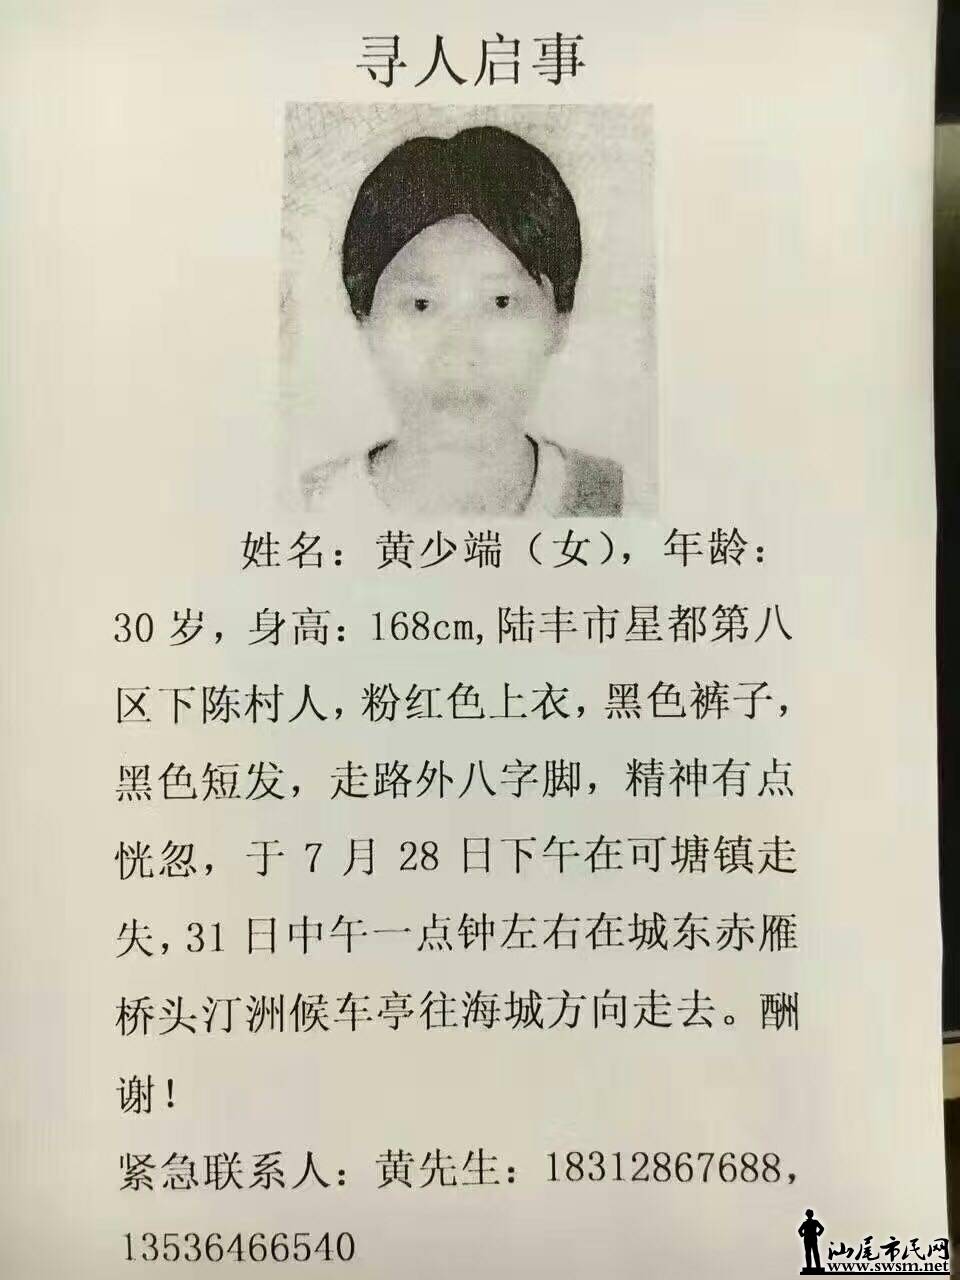 寻人启事
姓名：黄少端（女），年龄：
30岁，身高：168cm,陆丰市星都第八
区下陈村人，粉红色上衣，黑色裤子，
黑色短发，走路外八字脚，精神有点
恍忽，于7月28日下午在可塘镇走
失，31日中午一点钟左右在城东赤雁
桥头汀洲候车亭往海城方向走去。酬
谢！
紧急联系人：黄先生：18312867688，
13536466540
汕尾市民网
www.swsm.net